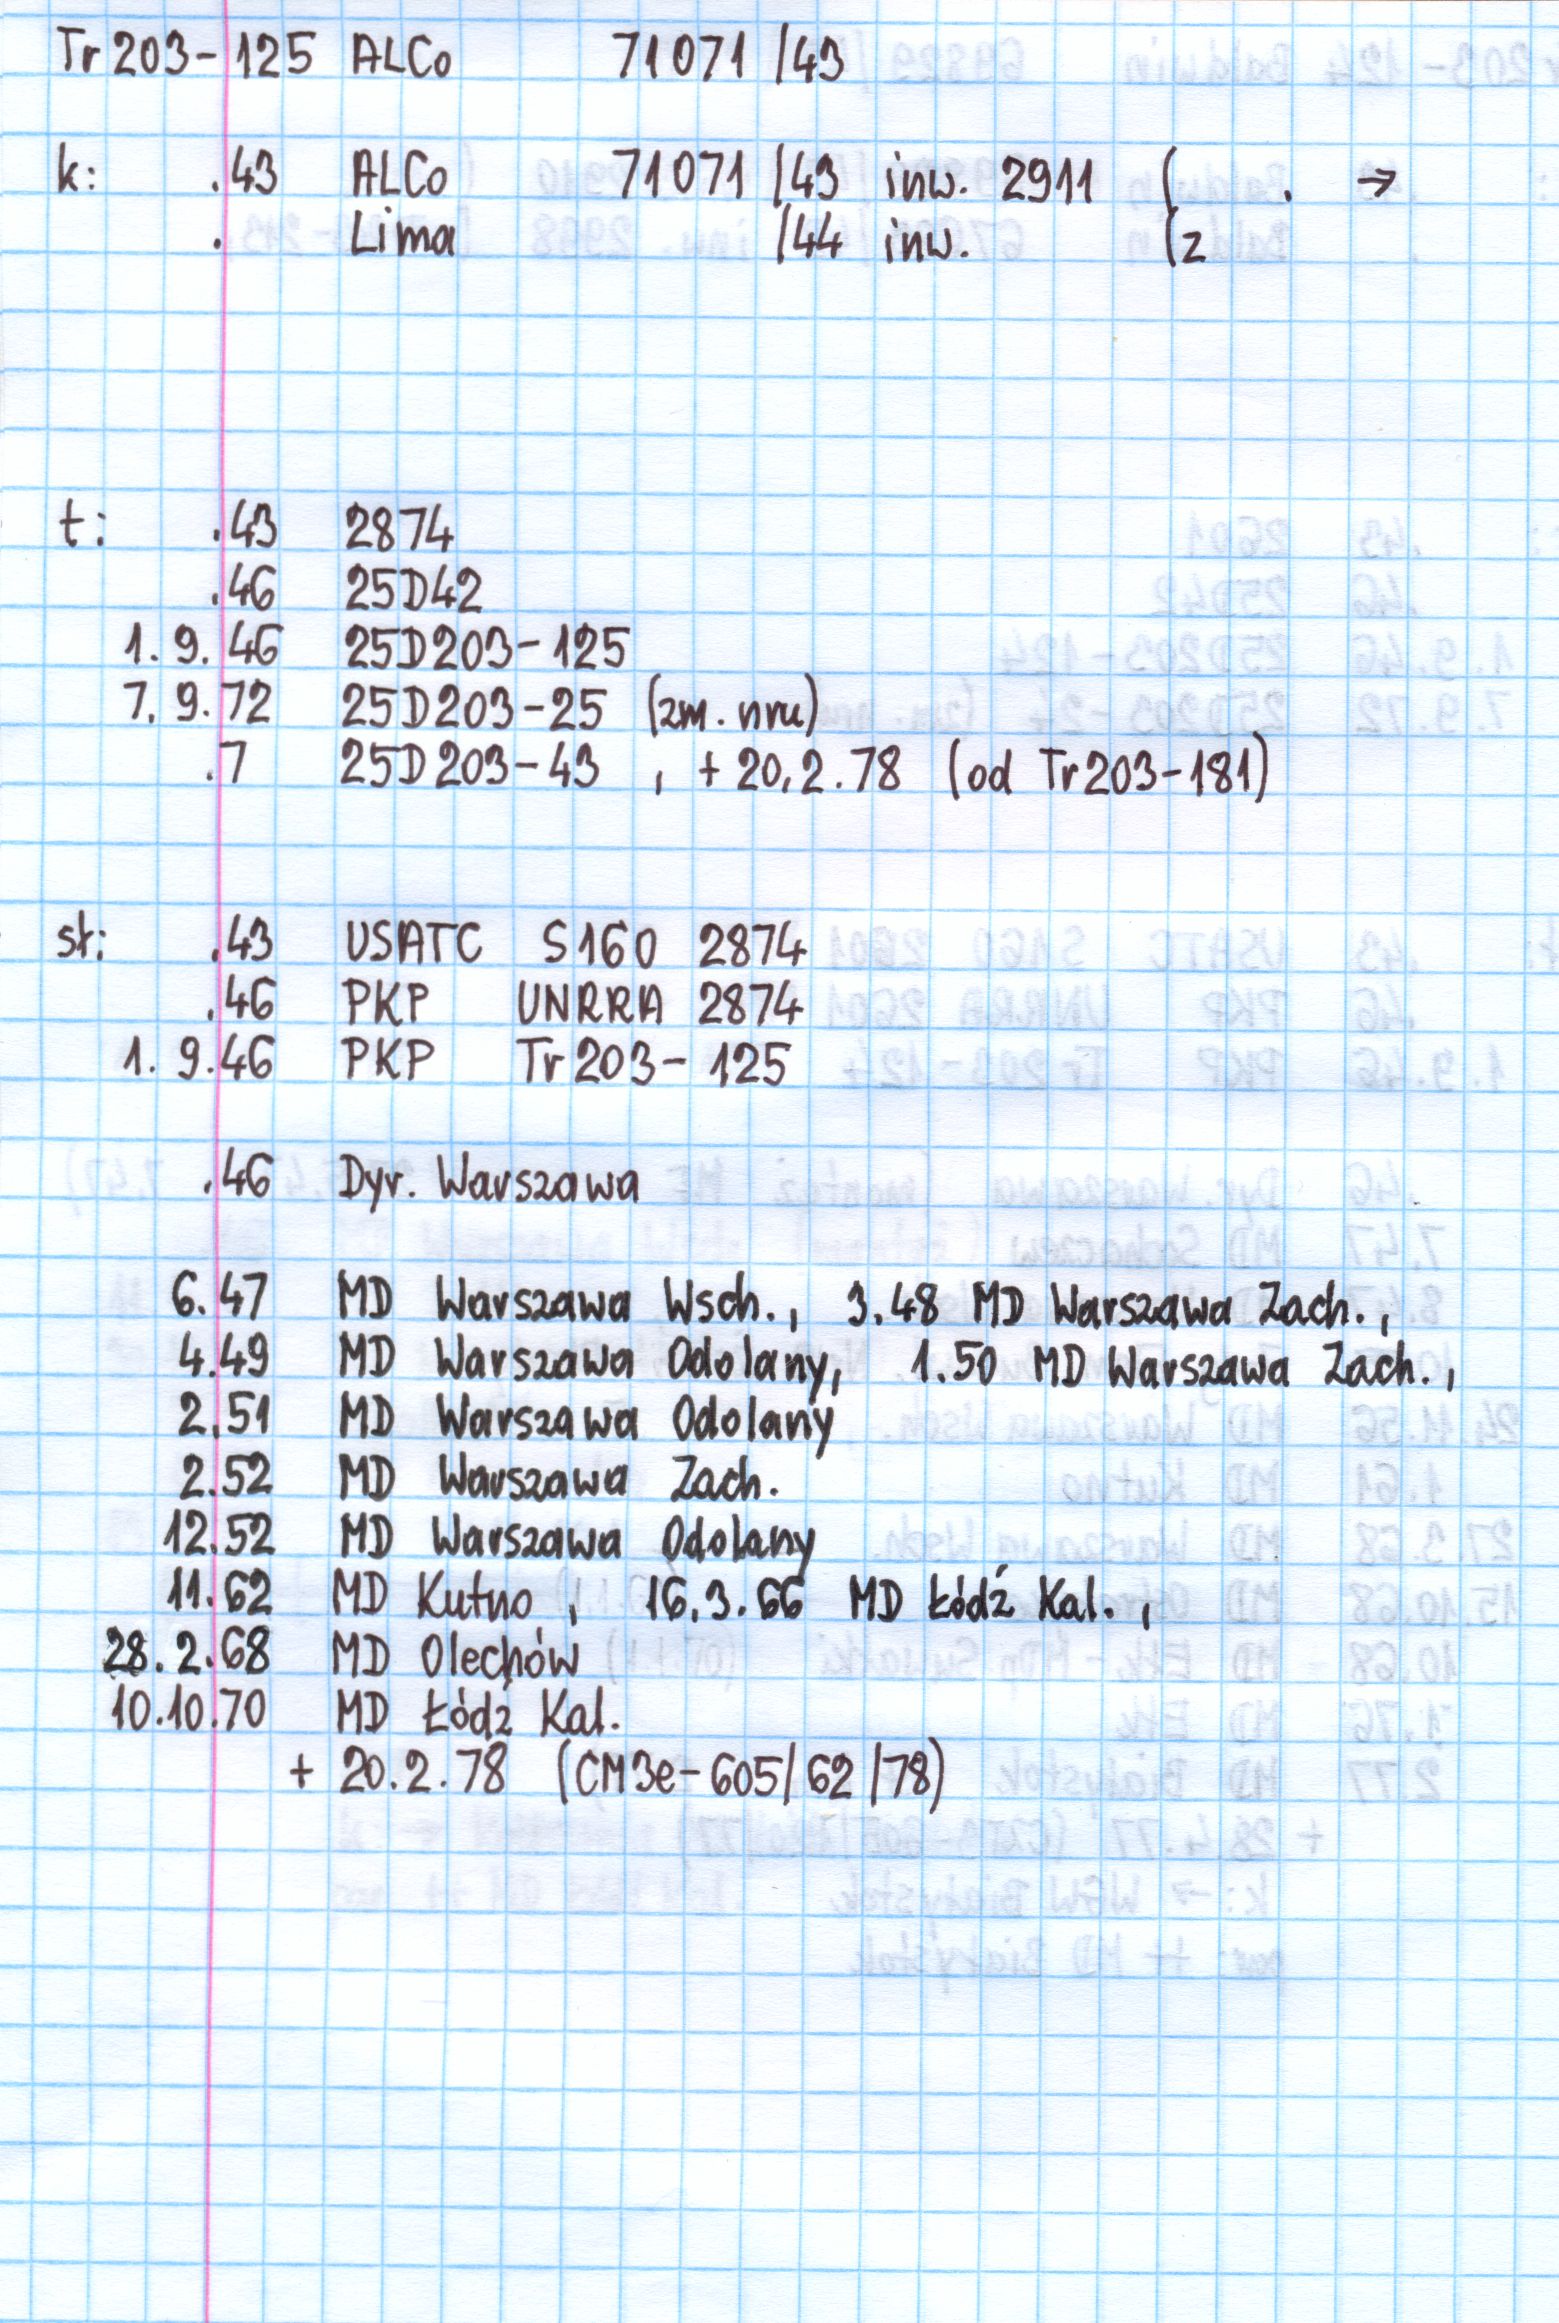 Tr203-125 ALCo 71071/43
k: .43 ALCo 71071/43 inw. 2911 ( . →
. Lima /44 inw. (z
t: .43 2874
.46 25D42
1.9.46 25D203-125
7.9.72 25D203-25 (zm. nru)
.7 25D203-43 , + 20.2.78 (od Tr203-181)
st: .43 USATC S160 2874
.46 PKP UNRRA 2874
1.9.46 PKP Tr203-125
.46 Dyr. Warszawa
6.47 MD Warszawa Wsch., 3.48 MD Warszawa Zach.,
4.49 MD Warszawa Odolany, 1.50 MD Warszawa Zach.,
2.51 MD Warszawa Odolany
2.52 MD Warszawa Zach.
12.52 MD Warszawa Odolany
11.62 MD Kutno , 16.3.66 MD Łódź Kal. ,
28.2.68 MD Olechów
10.10.70 MD Łódź Kal.
+ 20.2.78 (CM3e-605/62/78)